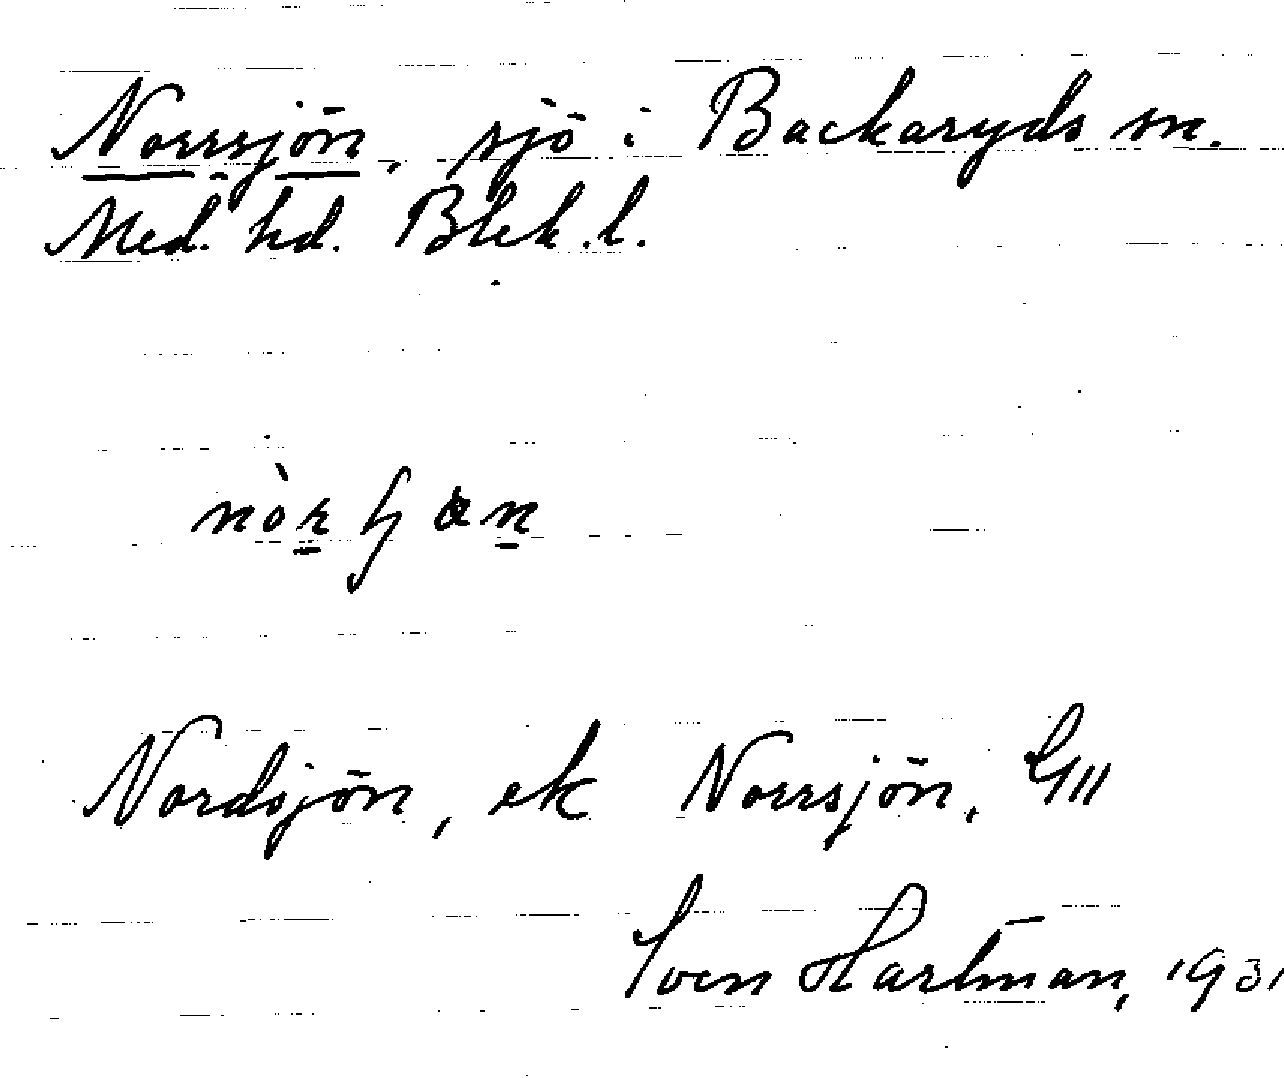 Norrsjön, sjö i Backaryds sn.
Med. hd. Blek.l.
Nordsjön, ek Norrsjön,
Sven Hartman, 1931